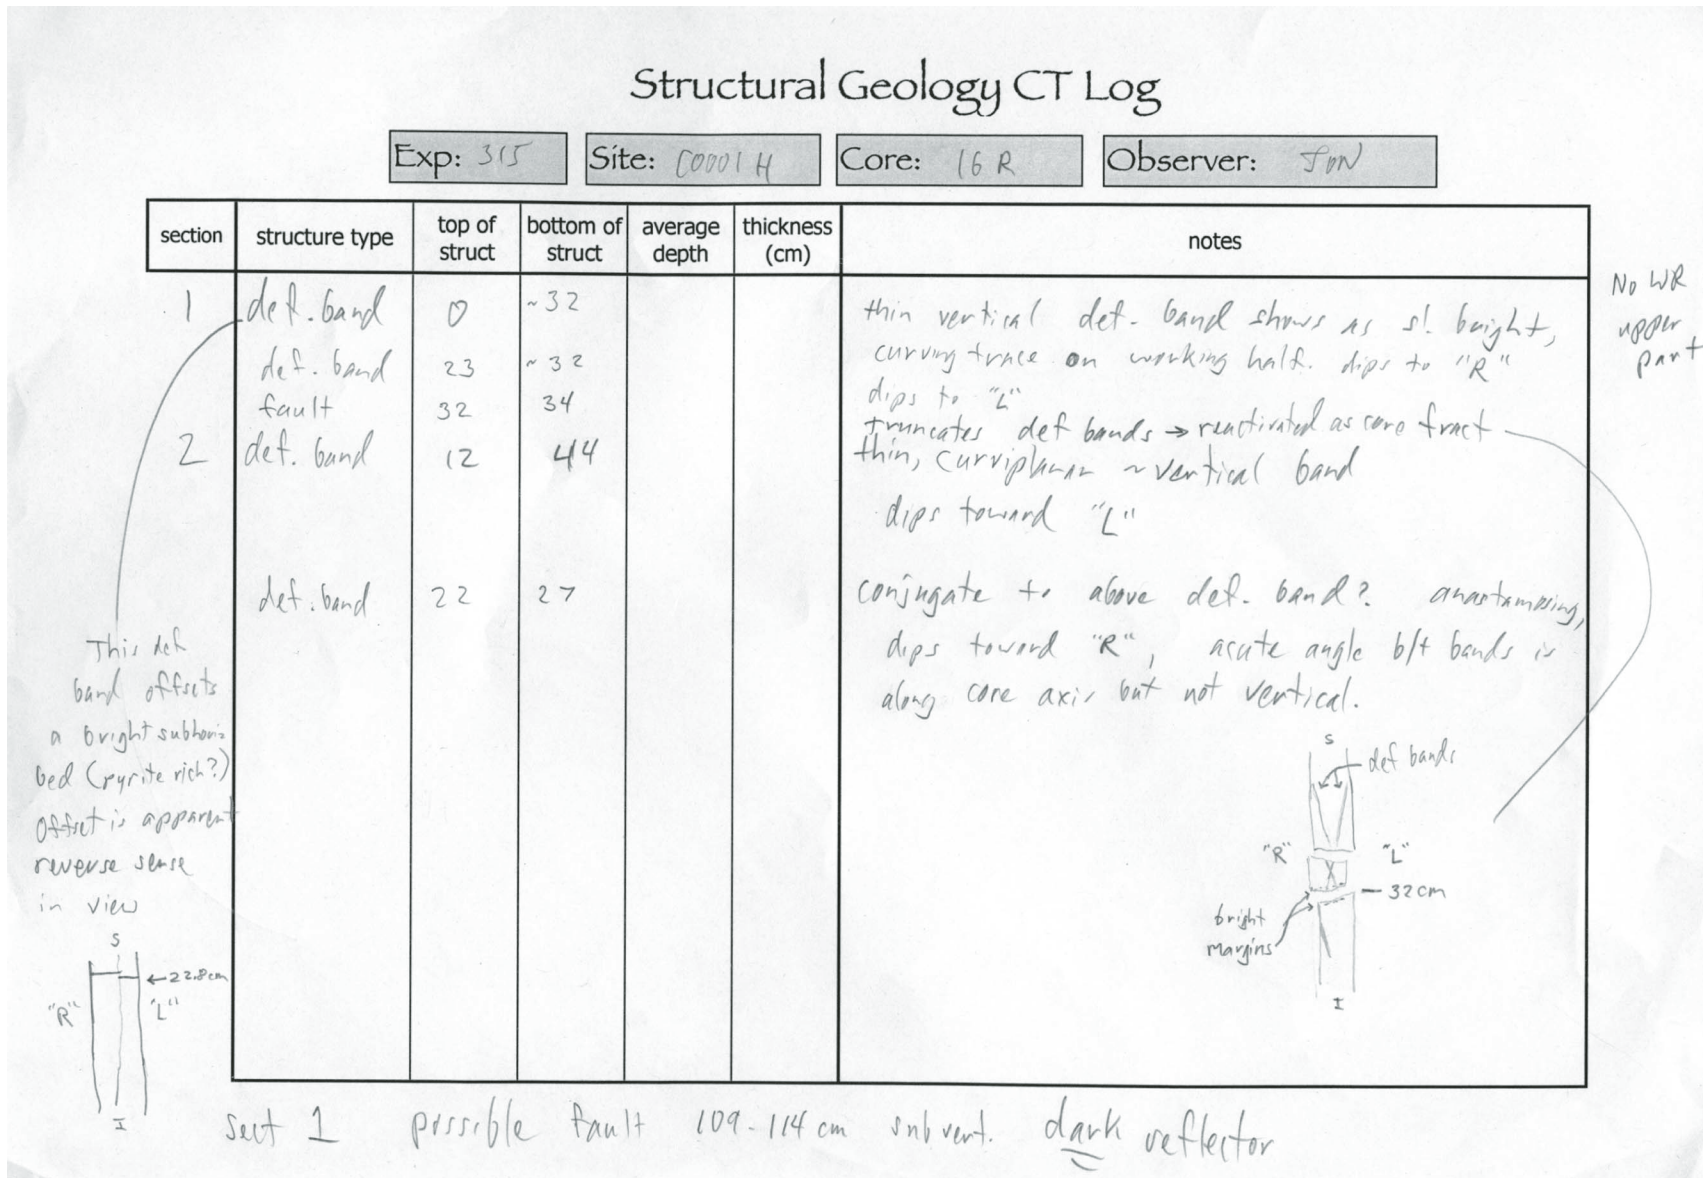 Structural Geology CT Log
Exp: 315 Site: C0001 H Core: 16 R Observer: JUN
section structure type top of struct bottom of struct average depth thickness (cm) notes
No WR
upper
part
1 def. band 0 ~32 thin vertical def. band shows as sl. bright,
curving trace on working half. dips to "R"
def. band 23 ~32 dips to "L"
fault 32 34 truncates def bands → reactivated as core fract
2 def. band 12 44 thin, curviplanar ~ vertical band
dips toward "L"
def. band 22 27 conjugate to above def. band? anastamosing,
dips toward "R", acute angle b/t bands is
along core axis but not vertical.
This def
band offsets
a bright subhoriz
bed (pyrite rich?)
Offset is apparent
reverse sense
in view
S
←22.8cm
"R" "L"
I
S
def bands
"R" "L"
32 cm
bright
margins
I
sect 1 possible fault 109-114 cm subvert. dark reflector